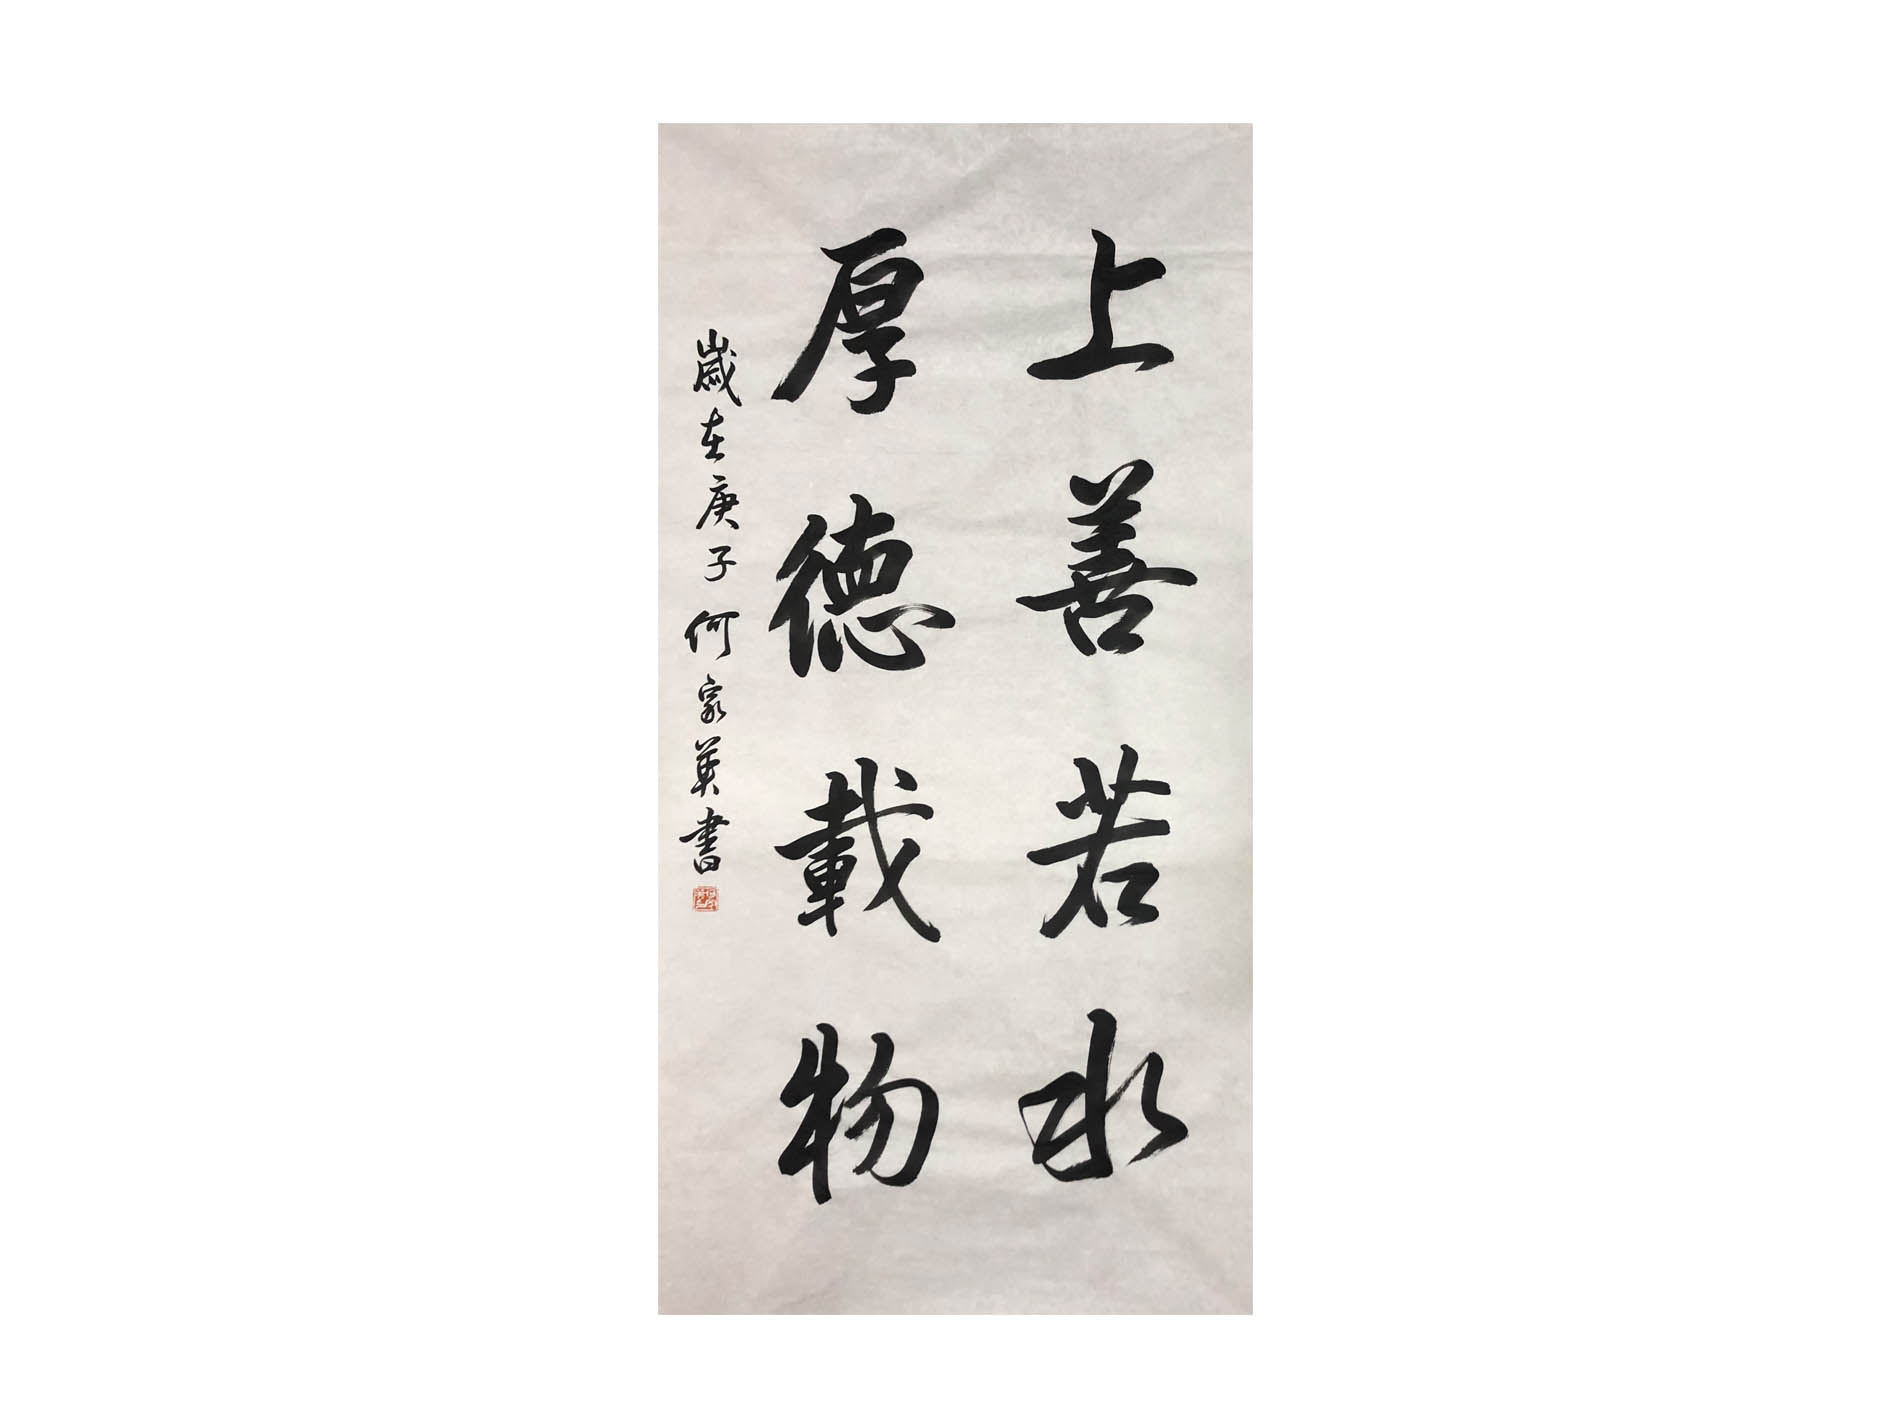 上善若水
厚德載物
歲在庚子何家英書